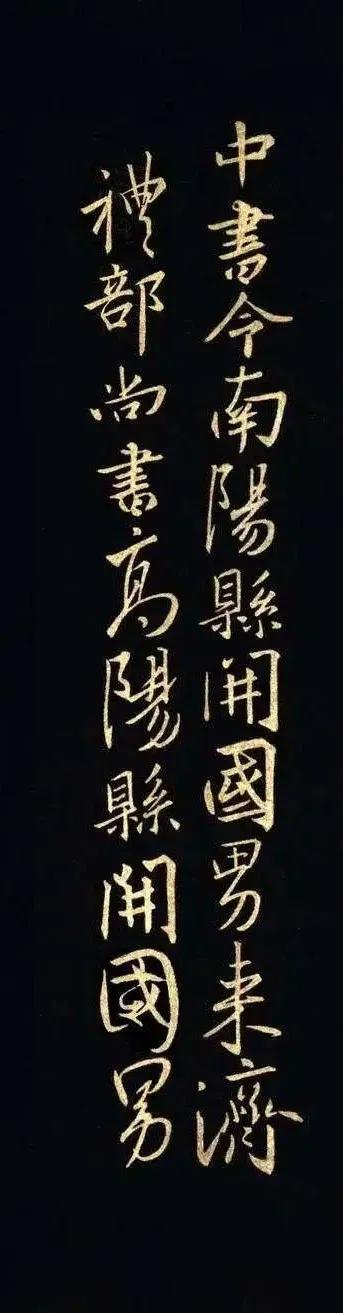 中書令南陽縣開國男来濟
禮部尚書高陽縣開國男